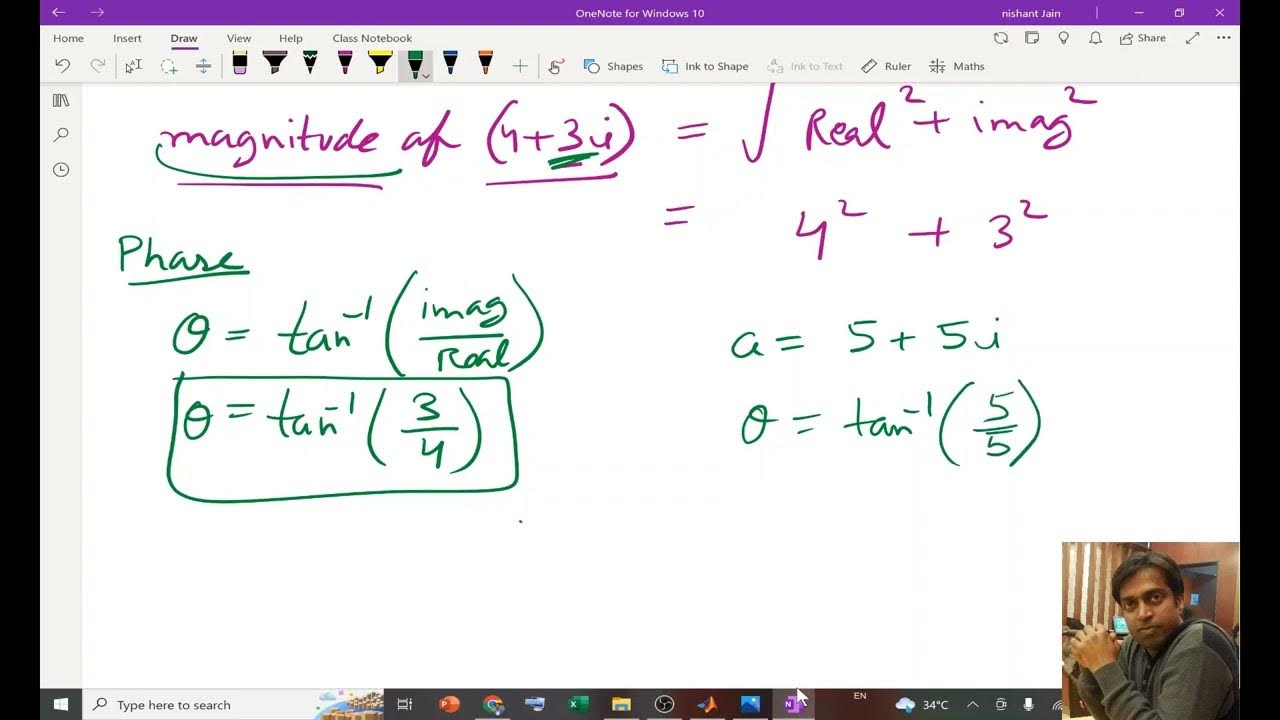 OneNote for Windows 10
nishant Jain
Home Insert Draw View Help Class Notebook
Share
Shapes Ink to Shape Ink to Text Ruler Maths
magnitude of (4+3i) = √ Real² + imag²
= 4² + 3²
Phase
θ = tan⁻¹ (imag/Real)
θ = tan⁻¹ (3/4)
a = 5 + 5i
θ = tan⁻¹ (5/5)
Type here to search
EN
34°C